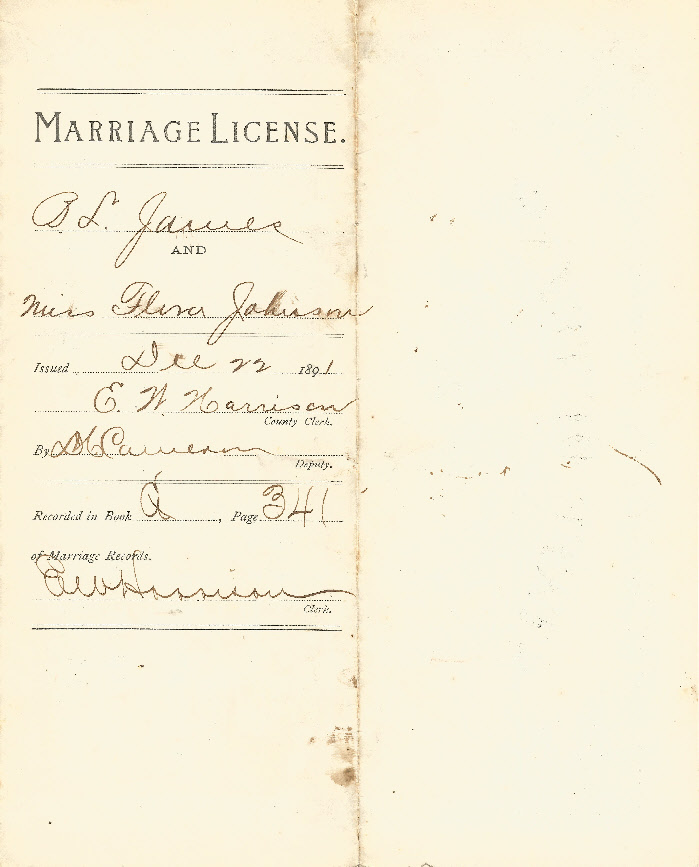 MARRIAGE LICENSE.
B L. James
AND
Miss Flora Johnson
Issued Dec 22 1891
E. W. Harrison
County Clerk.
By Cameron
Deputy.
Recorded in Book A, Page 341
of Marriage Records.
E W Harrison
Clerk.